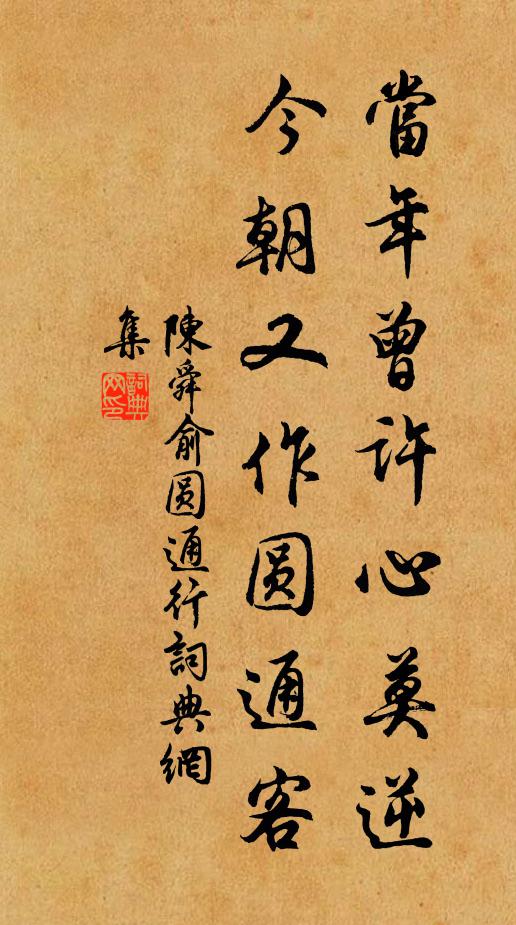 當年曾許心莫逆
今朝又作圆通客
陳舜俞圆通行詞典網
集
詞典網印